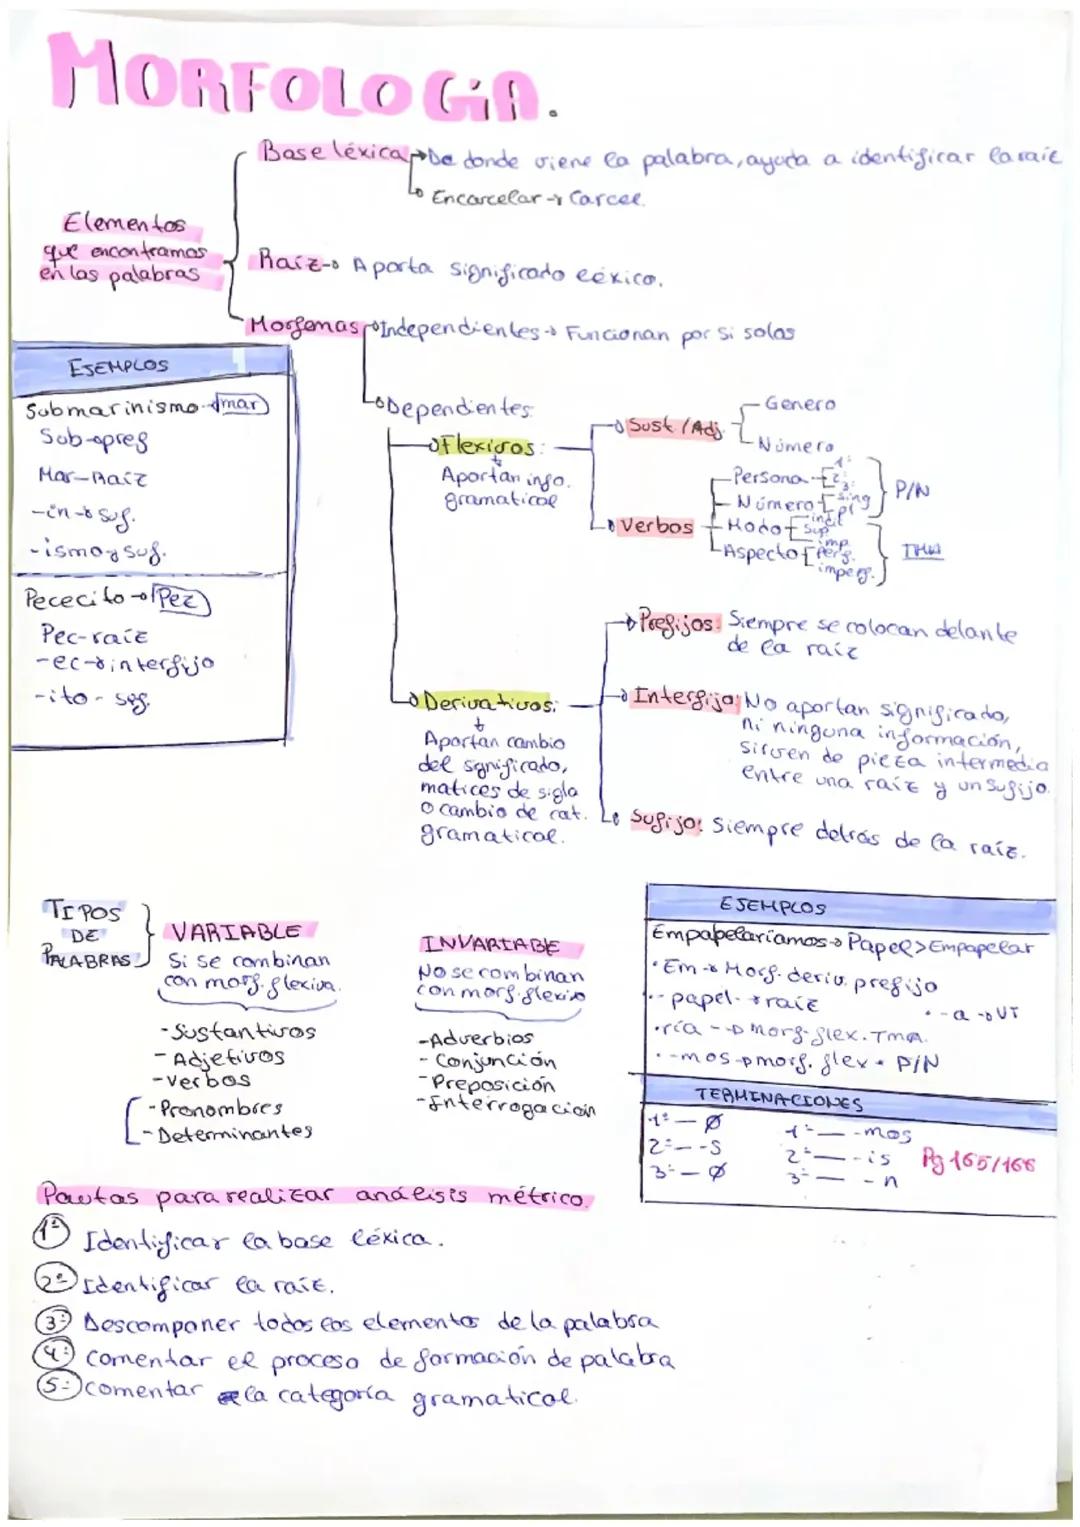 MORFOLOGíA.
Base léxica → De donde viene la palabra, ayuda a identificar la raíz
Encarcelar → Carcel.
Elementos
que encontramos
en las palabras
Raíz → Aporta significado léxico.
Morfemas → Independientes → Funcionan por si solas
Dependientes:
Flexivos:
Aportan info.
gramatical
Sust / Adj.
Genero
Número
Verbos
Persona 1ª 2ª 3ª
Número sing pl
P/N
Modo indic sup imp.
Aspecto perf. imperf.
TMA
Derivativos:
Aportan cambio
del significado,
matices de sigla
o cambio de cat.
gramatical.
Prefijos: Siempre se colocan delante
de la raíz
Interfijo: No aportan significado,
ni ninguna información,
sirven de pieza intermedia
entre una raíz y un sufijo.
Sufijo: Siempre detrás de la raíz.
EJEMPLOS
Submarinismo → mar
Sub → pref
Mar - Raíz
-in → suf.
-ismo → suf.
Pececito → Pez
Pec - raíz
-ec → interfijo
-ito - suf.
TIPOS
DE
PALABRAS
VARIABLE
Si se combinan
con morf. flexiva.
- Sustantivos
- Adjetivos
- Verbos
- Pronombres
- Determinantes
INVARIABE
No se combinan
con morf. flexivo
- Adverbios
- Conjunción
- Preposición
- Interrogación
EJEMPLOS
Empapelaríamos → Papel > Empapelar
· Em → Morf. deriv. prefijo
· - papel - → raíz
· -a → VT
· ría - → morf. flex. TMA.
· -mos → morf. flex. P/N
TERMINACIONES
1ª — Ø
2ª — -s
3ª — Ø
1ª — -mos
2ª — -is
3ª — -n
Pg 165/166
Pautas para realizar análisis métrico.
1º Identificar la base léxica.
2º Identificar la raíz.
3º Descomponer todos los elementos de la palabra
4º comentar el proceso de formación de palabra
5º comentar la categoría gramatical.